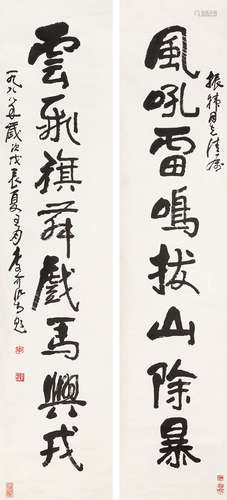 振緯同志清屬
風吼雷鳴拔山除暴
雲飛旗舞戲馬興戎
一九八八年歲次戊辰夏月